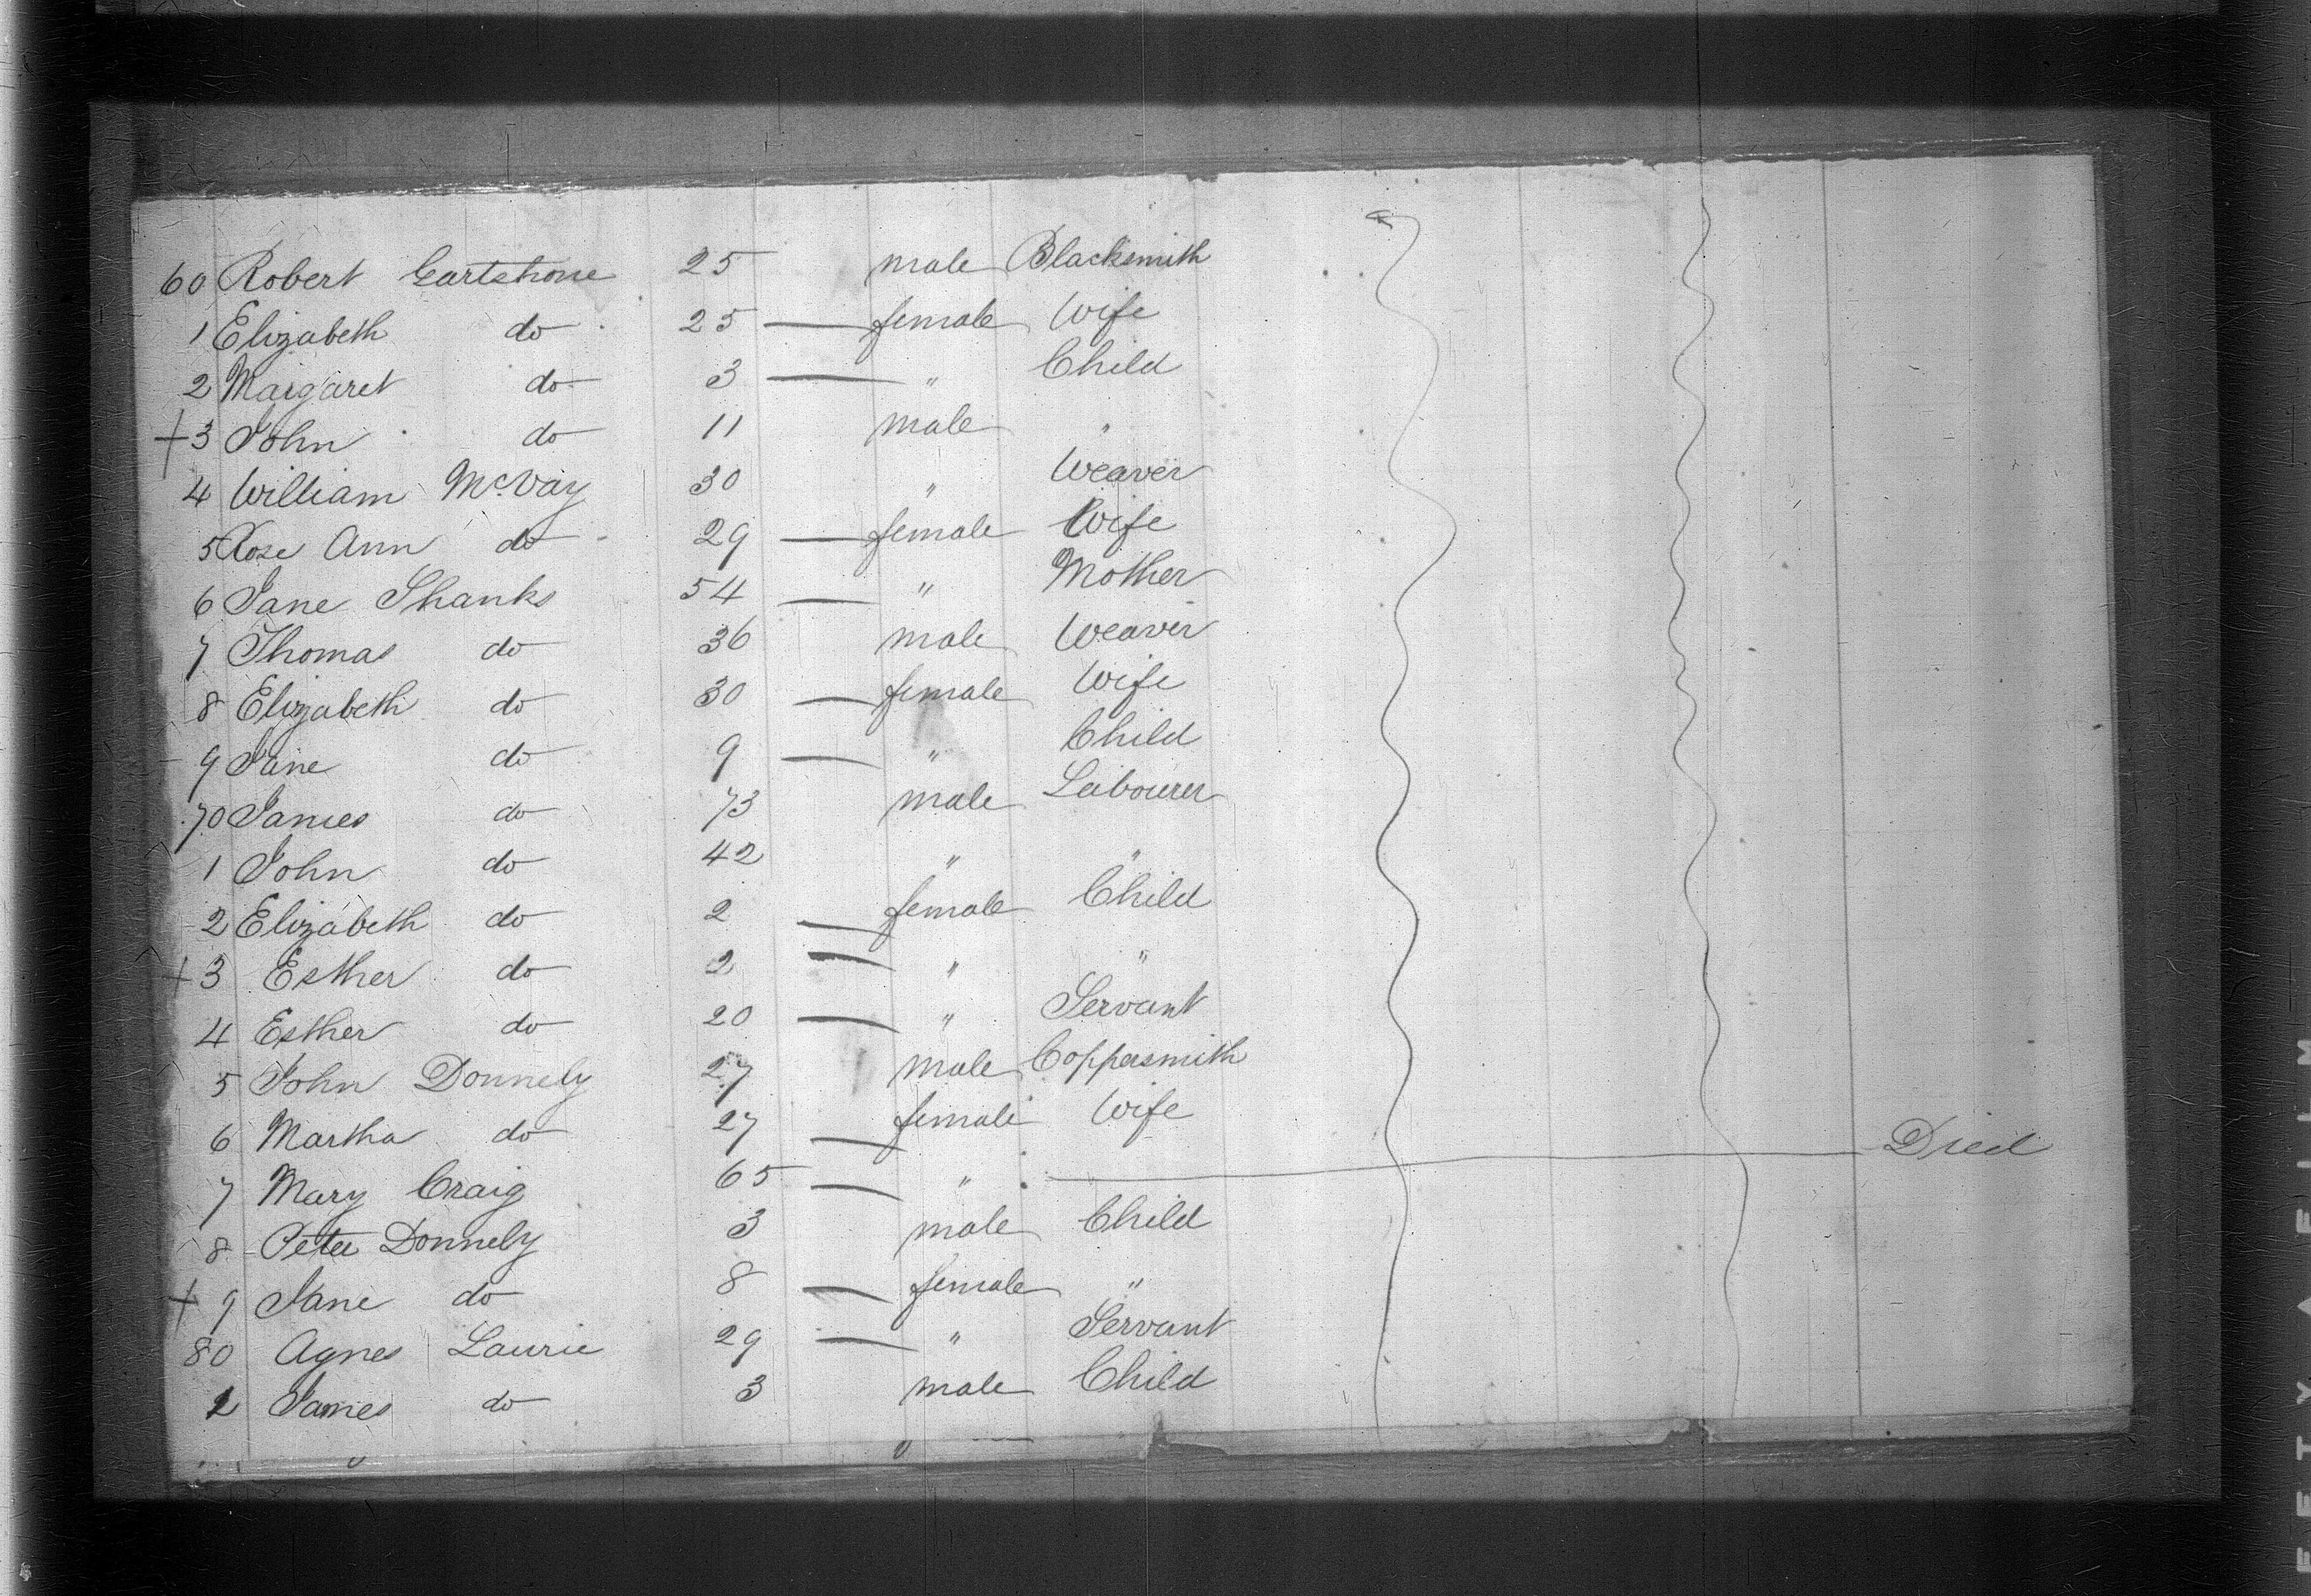 60 Robert Gartshore 25 male Blacksmith
1 Elizabeth do 25 — female Wife
2 Margaret do 3 — " Child
+3 John do 11 male "
4 William McVay 30 " Weaver
5 Rose Ann do 29 — female Wife
6 Jane Shanks 54 — " Mother
7 Thomas do 36 male Weaver
8 Elizabeth do 30 — female Wife
9 Jane do 9 — " Child
70 James do 73 male Labourer
1 John do 42 " "
2 Elizabeth do 2 — female Child
+3 Esther do 2 — " "
4 Esther do 20 — " Servant
5 John Donnely 27 male Coppersmith
6 Martha do 27 — female Wife
7 Mary Craig 65 — " — Died
8 Peter Donnely 3 male Child
+9 Jane do 8 — female "
80 Agnes Laurie 29 — " Servant
James do 3 male Child
FETY FILM